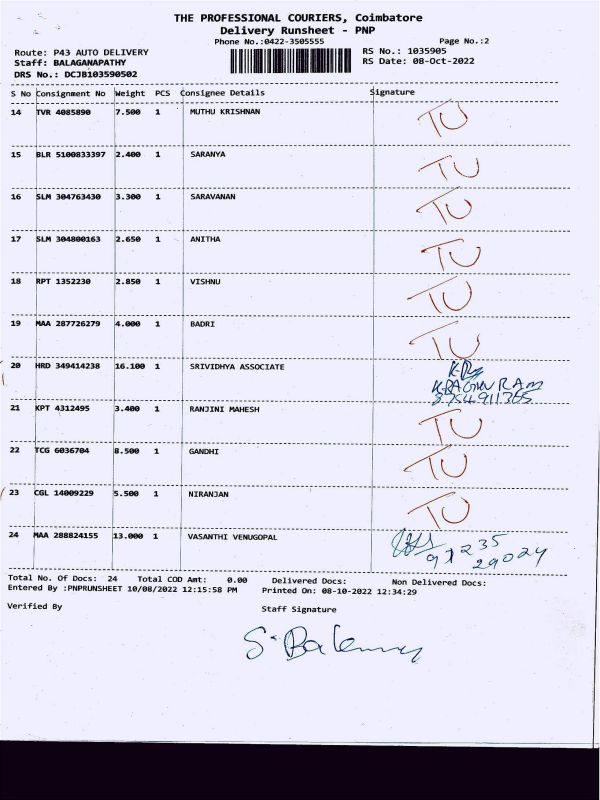 THE PROFESSIONAL COURIERS, Coimbatore
Delivery Runsheet - PNP
Phone No.:0422-3505555 Page No.:2
Route: P43 AUTO DELIVERY RS No.: 1035905
Staff: BALAGANAPATHY RS Date: 08-Oct-2022
DRS No.: DCJB103590502
S No Consignment No Weight PCS Consignee Details Signature
14 TVR 4085890 7.500 1 MUTHU KRISHNAN TU
15 BLR 5100833397 2.400 1 SARANYA TU
16 SLM 304763430 3.300 1 SARAVANAN TU
17 SLM 304800163 2.650 1 ANITHA TU
18 RPT 1352230 2.850 1 VISHNU TU
19 MAA 287726279 4.000 1 BADRI TU
20 HRD 349414238 16.100 1 SRIVIDHYA ASSOCIATE
K.RAGHU RAM
8754911365
21 KPT 4312495 3.400 1 RANJINI MAHESH TU
22 TCG 6036704 8.500 1 GANDHI TU
23 CGL 14009229 5.500 1 NIRANJAN TU
24 MAA 288824155 13.000 1 VASANTHI VENUGOPAL
91235
29024
Total No. Of Docs: 24 Total COD Amt: 0.00 Delivered Docs: Non Delivered Docs:
Entered By :PNPRUNSHEET 10/08/2022 12:15:58 PM Printed On: 08-10-2022 12:34:29
Verified By Staff Signature